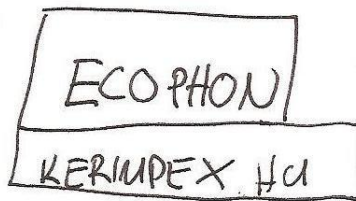 ECOPHON
KERIMPEX.HU